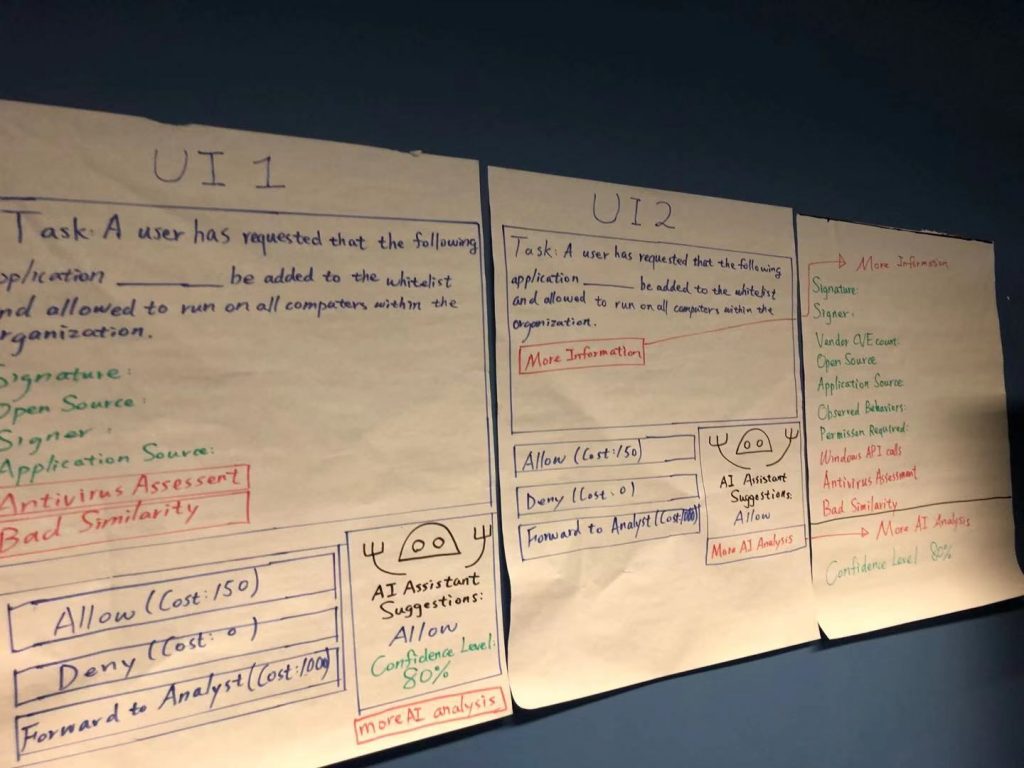 UI 1
Task: A user has requested that the following
pplication ______ be added to the whitelist
nd allowed to run on all computers within the
rganization.
Signature:
Open Source:
Signer:
Application Source:
Antivirus Assessent
Bad Similarity
Allow (Cost: 150)
Deny (Cost: 0)
Forward to Analyst (Cost: 1000)
AI Assistant
Suggestions:
Allow
Confidence Level:
80%
more AI analysis
UI 2
Task: A user has requested that the following
application ______ be added to the whitelist
and allowed to run on all computers within the
organization.
More Information
Allow (Cost: 150)
Deny (Cost: 0)
Forward to Analyst (Cost: 1000)
AI Assistant
Suggestions:
Allow
More AI Analysis
More Information
Signature:
Signer:
Vendor CVE count:
Open Source
Application Source:
Observed Behaviors:
Permisson Required:
Windows API calls
Antivirus Assessment
Bad Similarity
More AI Analysis
Confidence Level 80%